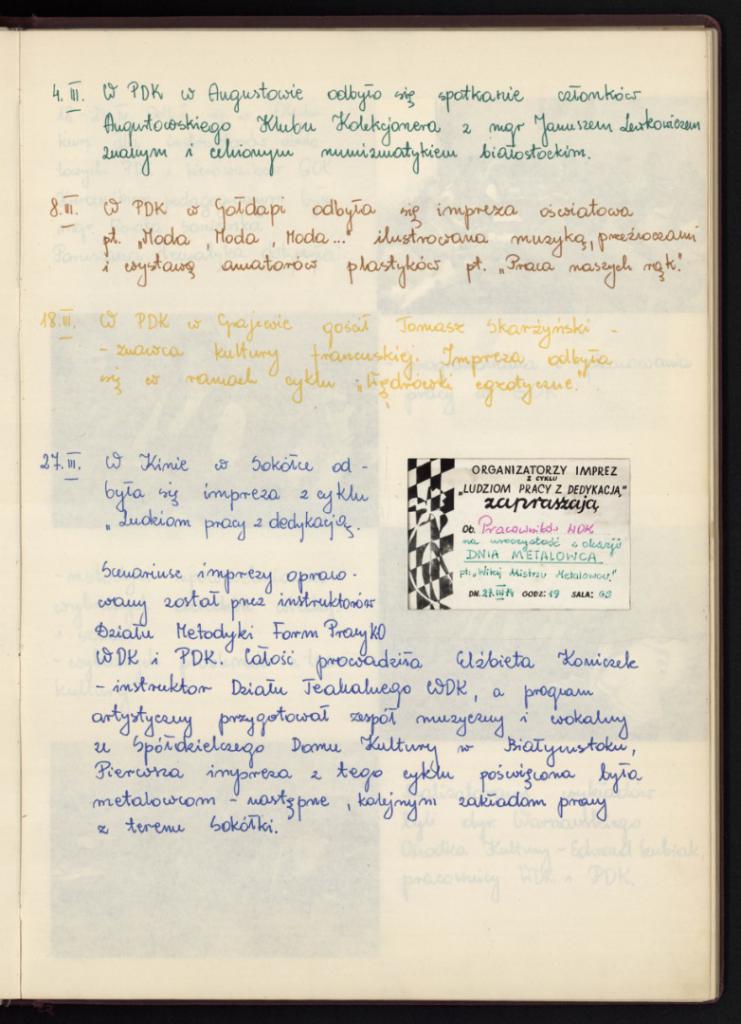 4.III. W PDK w Augustowie odbyło się spotkanie członków
Augustowskiego Klubu Kolekcjonera z mgr Januszem Lewkowiczem
znanym i cenionym numizmatykiem białostockim.
8.III. W PDK w Gołdapi odbyła się impreza oświatowa
pt. „Moda, Moda, Moda..." ilustrowana muzyką, przeźroczami
i wystawą amatorów plastyków pt. „Praca naszych rąk."
18.III. W PDK w Grajewie gościł Tomasz Skarżyński -
- znawca kultury francuskiej. Impreza odbyła
się w ramach cyklu „Wędrówki egzotyczne."
27.III. W Kinie w Sokółce od-
była się impreza z cyklu
„Ludziom pracy z dedykacją.
Scenariusz imprezy opraco-
wany został przez instruktorów
Działu Metodyki Form Pracy KO
WDK i PDK. Całość prowadziła Elżbieta Koniczek
- instruktor Działu Teatralnego WDK, a program
artystyczny przygotował zespół muzyczny i wokalny
ze Spółdzielczego Domu Kultury w Białymstoku,
Pierwsza impreza z tego cyklu poświęcona była
metalowcom - następne, kolejnym zakładom pracy
z terenu Sokółki.
ORGANIZATORZY IMPREZ
Z CYKLU
„LUDZIOM PRACY Z DEDYKACJĄ"
zapraszają
Ob. Pracowników WDK
na uroczystość z okazji
DNIA METALOWCA
pt: „Witaj Mistrzu Metalowcu"
DN. 27.III 74 GODZ: 19 SALA: